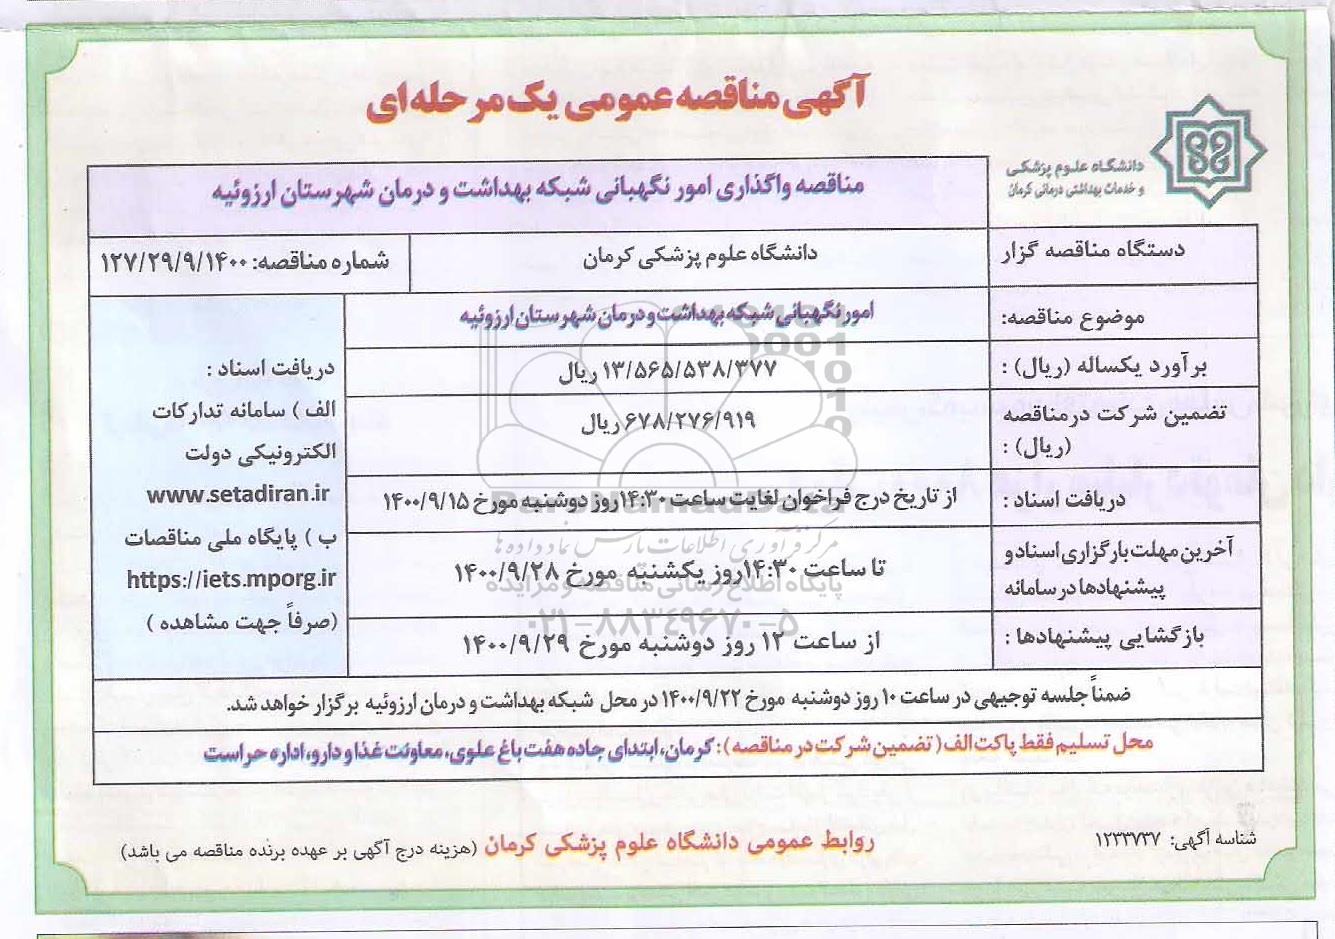 آگهی مناقصه عمومی یک مرحله‌ای
دانشگاه علوم پزشکی
و خدمات بهداشتی درمانی کرمان
مناقصه واگذاری امور نگهبانی شبکه بهداشت و درمان شهرستان ارزوئیه
دستگاه مناقصه گزار
دانشگاه علوم پزشکی کرمان
شماره مناقصه: ۱۲۷/۲۹/۹/۱۴۰۰
موضوع مناقصه:
امور نگهبانی شبکه بهداشت و درمان شهرستان ارزوئیه
برآورد یکساله (ریال) :
۱۳/۵۶۵/۵۳۸/۳۷۷ ریال
تضمین شرکت در مناقصه
(ریال) :
۶۷۸/۲۷۶/۹۱۹ ریال
دریافت اسناد :
از تاریخ درج فراخوان لغایت ساعت ۱۴:۳۰ روز دوشنبه مورخ ۱۴۰۰/۹/۱۵
آخرین مهلت بارگزاری اسناد و
پیشنهادها در سامانه
تا ساعت ۱۴:۳۰ روز یکشنبه مورخ ۱۴۰۰/۹/۲۸
بازگشایی پیشنهادها :
از ساعت ۱۲ روز دوشنبه مورخ ۱۴۰۰/۹/۲۹
دریافت اسناد :
الف ) سامانه تدارکات
الکترونیکی دولت
www.setadiran.ir
ب ) پایگاه ملی مناقصات
https://iets.mporg.ir
(صرفاً جهت مشاهده )
ضمناً جلسه توجیهی در ساعت ۱۰ روز دوشنبه مورخ ۱۴۰۰/۹/۲۲ در محل شبکه بهداشت و درمان ارزوئیه برگزار خواهد شد.
محل تسلیم فقط پاکت الف ( تضمین شرکت در مناقصه ): کرمان، ابتدای جاده هفت باغ علوی، معاونت غذا و دارو، اداره حراست
شناسه آگهی: ۱۲۳۳۷۳۷
روابط عمومی دانشگاه علوم پزشکی کرمان (هزینه درج آگهی بر عهده برنده مناقصه می باشد)
مرکز فرآوری اطلاعات پارس نماد داده ها
پایگاه اطلاع رسانی مناقصه و مزایده
۰۲۱-۸۸۳۴۹۶۷۰-۵